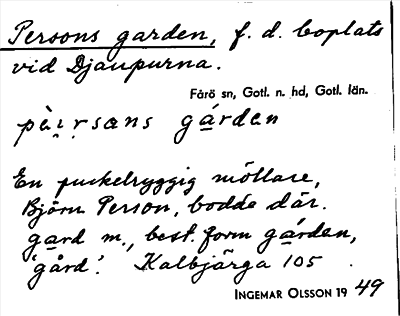 Persons garden, f. d. boplats
vid Djaupurna.
Fårö sn, Gotl. n. hd, Gotl. län.
pèɪrsans gården
En puckelryggig möllare,
Björn Person, bodde där.
gard m., best. form gården,
'gård'. Kalbjärga 105
INGEMAR OLSSON 1949